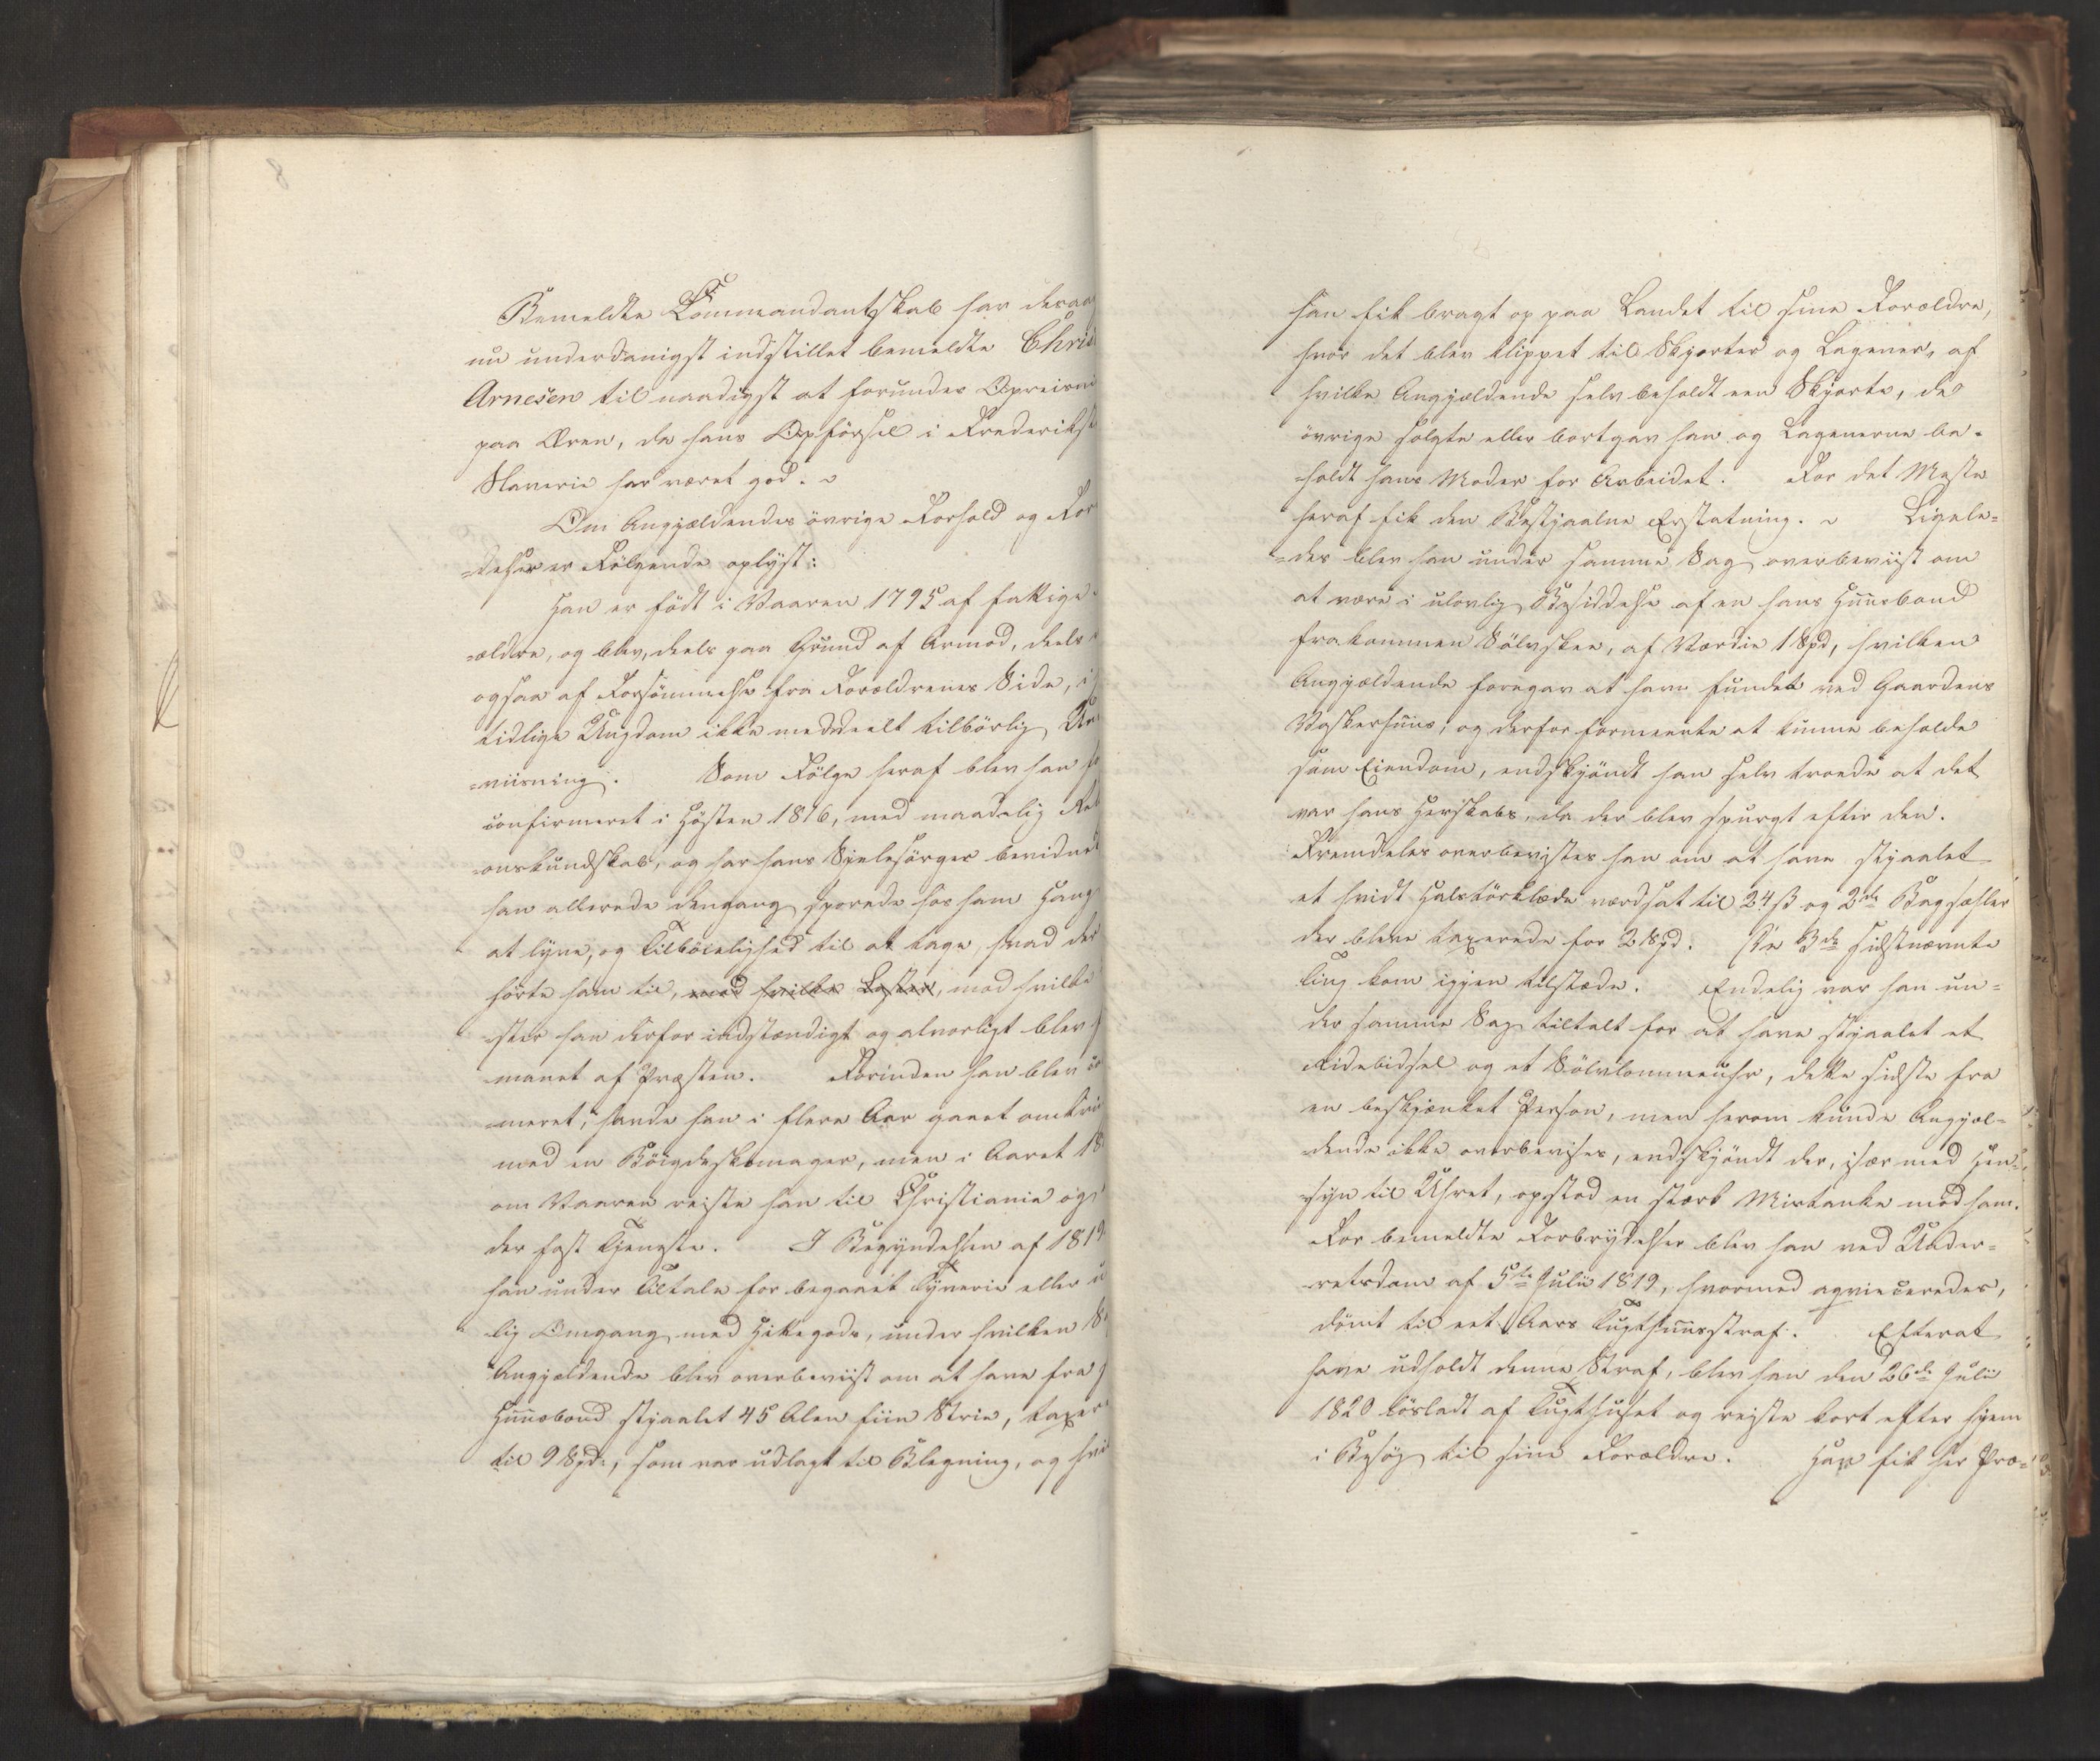 8
Bemeldte Commandantskab har desaa
nu underdanigst indstillet bemeldte Chris
Arnesen til naadigst at forundes Opreisni
paa Æren, da hans Opførsel i Frederikst
Slaverie har været god.
Om Angjældendes øvrige Forhold og For
-delser er Følgende oplyst:
Han er født i Vaaren 1795 af fattige
-ældre, og blev, deels paa Grund af Armod, deels
ogsaa af Forsømmelse fra Forældrenes Side, i
tidlige Ungdom ikke meddeelt tilbørlig Un
-viisning. Som Følge heraf blev han
confirmeret i Høsten 1816, med maadelig Rel
-onskundskab, og har hans Sjelesørger bevidnet
han allerede dengang sporede hos ham Hang
at lyve, og Tilbøielighed til at tage, hvad der
hørte ham til, med hvilke Laster, mod hvilke
-ster han derfor indstændigt og alvorligt blev
-manet af Præsten. Forinden han blev co
-meret, havde han i flere Aar gaaet omkri
med en Bøigdeskomager, men i Aaret 18
om Vaaren reiste han til Christiania og
der fast Tjeneste. I Begyndelsen af 1819
han under Tiltale for begaaet Tyverie eller u
lig Omgang med Hittegods, under hvilken S
Angjældende blev overbeviist om at have fra
Huusbond stjaalet 45 Alen fiin Strie, taxer
til 9 Spd., som var udlagt til Blegning, og hvi
han fik bragt op paa Landet til sine Forældre,
hvor det blev klippet til Skjorter og Lagener, af
hvilke Angjældende selv beholdt een Skjorte, de
øvrige solgte eller bortgav han og Lagenerne be-
-holdt hans Moder for Arbeidet. For det Meste
heraf fik den Bestjaalne Erstatning. Ligele-
-des blev han under samme Sag overbeviist om
at være i ulovlig Besiddelse af en hans Huusbond
frakommen Sølvskee, af Værdie 1 Spd, hvilken
Angjældende foregav at have fundet ved Gaardens
Vaskerhuus, og derfor formeente at kunne beholde
som Eiendom, endskjøndt han selv troede at det
var hans Herskabs, da der blev spurgt efter den.
Fremdeles overbevistes han om at have stjaalet
et hvidt Halstørklæde værdsat til 24 ß og 2de Bagsæhler
der bleve taxerede for 2 Spd. De 3de sidstnævnte
Ting kom igjen tilstæde. Endelig var han un-
der samme Sag tiltalt for at have stjaalet et
Ridebidsel og et Sølvlommeuhr, dette sidste fra
en beskjænket Person, men herom kunde Angjæl-
-dende ikke overbevises, endskjøndt der, især med Hen-
-syn til Uhret, opstod en stærk Mistanke mod ham.
For bemeldte Forbrydelser blev han ved Under-
-retsdom af 5te Julii 1819, hvormed aqviesceredes,
dømt til eet Aars Tugthuusstraf. Efterat
have udholdt denne Straf, blev han den 26de Julii
1820 løsladt af Tugthuset og reiste kort efter hjem
i Besøg til sine Forældre. Han fik her Præ-